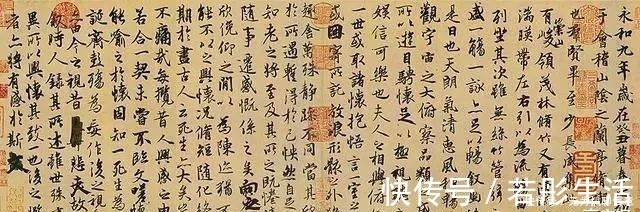 永和九年歲在癸丑暮春
于會稽山陰之蘭亭
也羣賢畢至少長咸
有崇山峻領茂林脩竹又有
湍暎帶左右引以為流
列坐其次雖無絲竹管
盛一觴一詠亦足以暢敘
是日也天朗氣清惠風
觀宇宙之大俯察品類
所以遊目騁懷足以極
娛信可樂也夫人之相與
一世或取諸懷抱悟言一室
或因寄所託放浪形骸
趣舍萬殊靜躁不同當
於所遇蹔得於己怏然自
知老之將至及其所之既惓
隨事遷感慨係之矣向之
欣俛仰之閒以為陳迹猶不
能不以之興懷況脩短隨化
期於盡古人云死生亦大矣
不痛哉每攬昔人興感之由
若合一契未嘗不臨文嗟悼
能喻之於懷固知一死生為
誕齊彭殤為妄作後之視
亦由今之視昔悲夫故
敘時人錄其所述雖世殊
異所以興懷其致一也後
者亦將有感於斯文
快传号 / 若彤生活